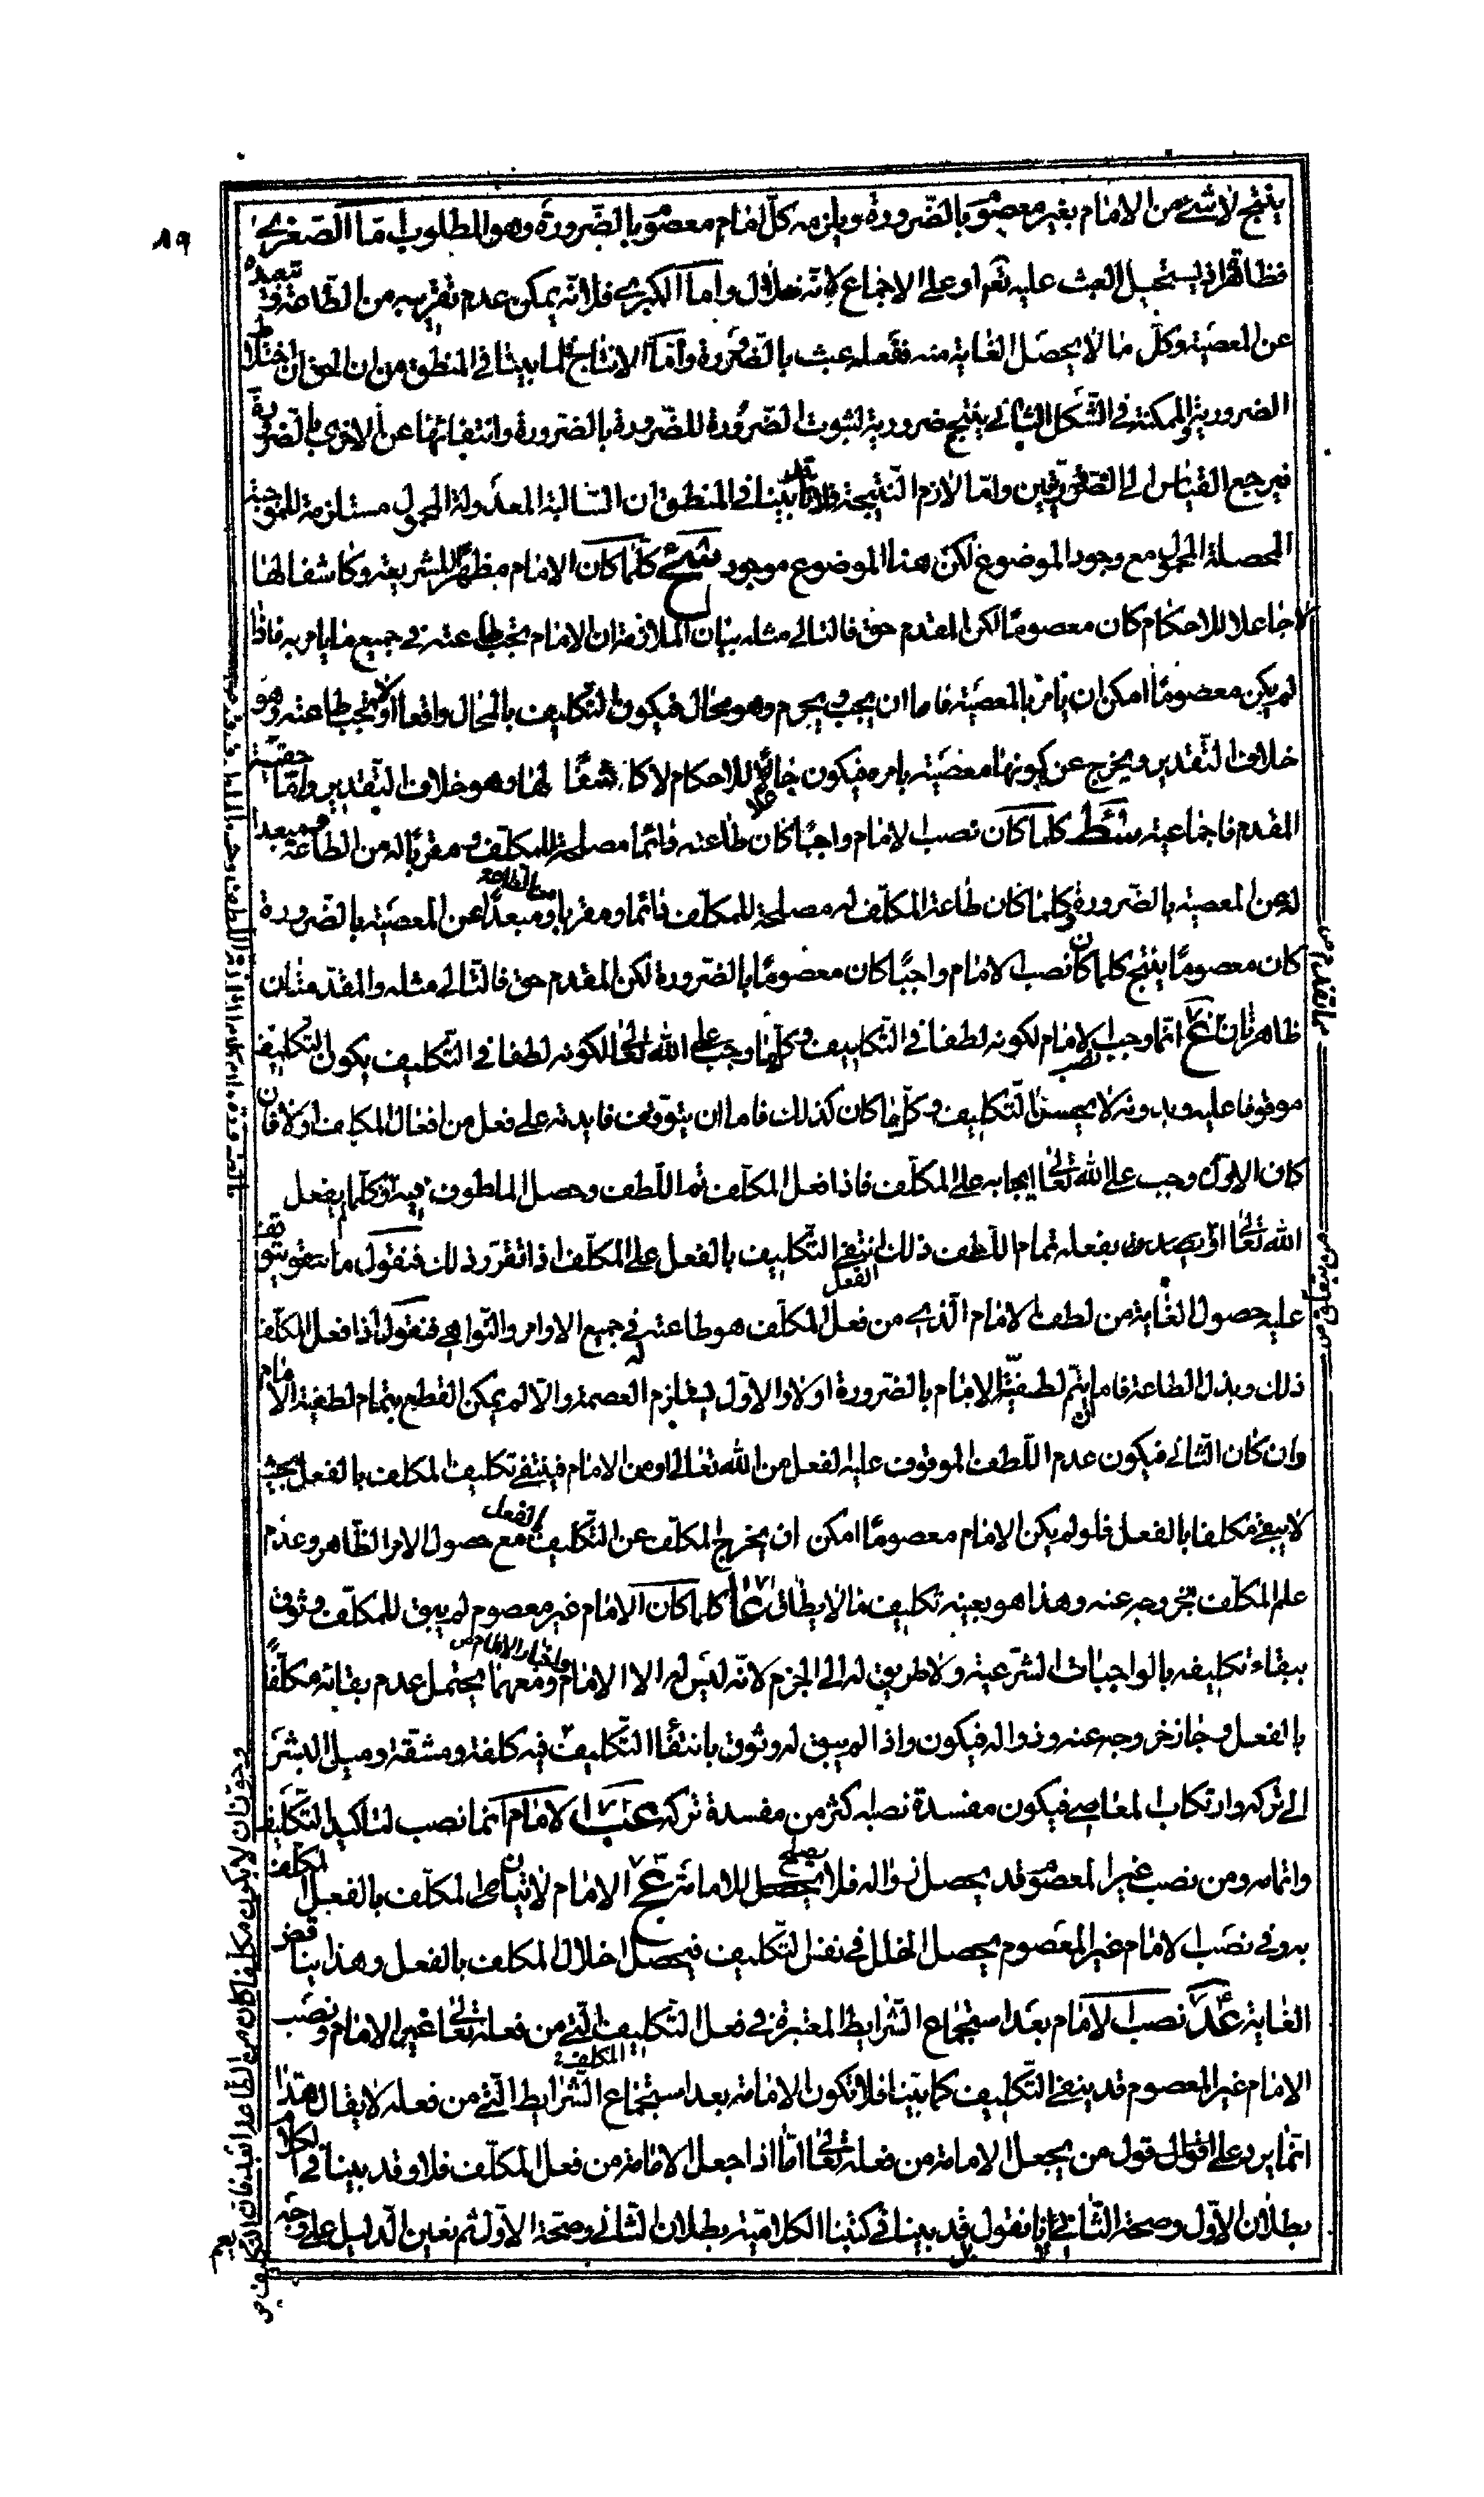 ١٩
ينتج لا شئ من الامام بغير معصوم بالضّرورة ويلزمه كلّ امام معصوم بالضّرورة وهو المطلوب امّا الصّغرى
فظاهرة اذ يستحيل العبث عليه تعه او على الاجماع لانّه ضلال وامّا الكبرى فلانّه يمكن عدم تقريبه من الطّاعة وتبعيده
عن المعصية وكلّ ما لا يحصل الغاية منه ففعله عبث بالضّرورة وامّا الانتاج فلما بيّنا في المنطق من ان الحق ان اختلاط
الضرورية والممكنة في الشّكل الثّاني ينتج ضرورية لثبوت الضّرورة للضّرورة بالضرورة وانتفائها عن الاخرى بالضرورة
فيرجع القياس الى الضّروريّتين وامّا لازم النّتيجة فلانّا قد بيّنا في المنطق ان السّالبة المعدولة المحمول مستلزمة للموجبة
المحصلة المحمول مع وجود الموضوع لكنّ هنا الموضوع موجود كلّما كان الامام مظهرًا للشريعة وكاشفا لها
لا جاعلا للاحكام كان معصومًا لكن المقدم حق فالتالي مثله بيان الملازمة ان الامام يجب طاعته في جميع ما يامر به فاذا
لم يكن معصومًا امكن ان يأمر بالمعصية فاما ان يجب ويحرم وهو محال فيكون التّكليف بالمحال واقعا او لا تجب طاعته وهو
خلاف التّقدير ويخرج عن كونها معصية بامره فيكون جاعلا للاحكام لا كاشفًا لها وهو خلاف التّقدير وامّا حقّيّة
المقدم فاجماعية كلما كان نصب الامام واجبًا كان طاعته دائما مصلحة للمكلّف ومقربا له من الطاعة ومبعدا
له عن المعصية بالضّرورة وكلما كان طاعة المكلّف له مصلحة للمكلّف دائما ومقربا من الطاعة ومبعدًا عن المعصية بالضّرورة
كان معصومًا ينتج كلما كان نصب الامام واجبًا كان معصومًا بالضّرورة لكن المقدم حق فالتّالي مثله والمقدّمتان
ظاهرتان انّما وجب نصب الامام لكونه لطفا في التّكليف وكلّما وجب على الله تعالى لكونه لطفا في التّكليف يكون التّكليف
موقوفا عليه وبدونه لا يحسن التّكليف وكلّما كان كذلك فاما ان يتوقف فايدته على فعل من افعال المكلف اولا فان
كان الاوّل وجب على الله تعالى ايجابه على المكلّف فاذا فعل المكلّف تم اللّطف وحصل الملطوف فيه وكلّما لم يفعل
الله تعالى بفعله تمام اللّطف ذلك انتفى التّكليف بالفعل على المكلّف اذا تقرّر ذلك فنقول ما يتوقف
عليه حصول الغاية من لطف الامام الّذي من فعل المكلّف هو طاعته في جميع الاوامر والنّواهي فنقول اذا فعل المكلّف
ذلك وبذل الطاعة فاما ان يتم لطفيّة الامام بالضّرورة اولا والاوّل يستلزم العصمة والّا لم يمكن القطع بتمام لطفية الامام
وان كان الثّاني فيكون عدم اللّطف الموقوف عليه الفعل من الله تعالى او من الامام فينتفي تكليف المكلف بالفعل بحيث
لا يبقى مكلفا بالفعل فلو لم يكن الامام معصومًا امكن ان يخرج المكلّف عن التّكليف بالفعل مع حصول الامر الظّاهر وعدم
علم المكلّف بخروجه عنه وهذا هو بعينه تكليف ما لا يطاق كلما كان الامام غير معصوم لم يبق للمكلّف وثوق
ببقاء تكليفه بالواجبات الشّرعية ولا طريق له الى الجزم لانّه ليس له الا الامام واخبار الامام ومعهما يحتمل عدم بقائه مكلّفًا
بالفعل وجاز خروجه عنه وزواله فيكون واذا لم يبق له وثوق بانتفاء التّكليف فيه كلفة ومشقة وميل البشر
الى تركه وارتكاب المعاصي فيكون مفسدة نصبه اكثر من مفسدة تركه الامام انما نصب لتاكيد التّكليف
واتمامه ومن نصب غير المعصوم قد يحصل زواله فلا يصلح للامامة الامام لا المكلّف بالفعل
به وفي نصب الامام غير المعصوم يحصل الخلل في نفس التّكليف فيحصل اخلال المكلف بالفعل وهذا يناقض
الغاية نصب الامام بعد استجماع الشّرايط المعتبرة في فعل التّكليف الّتي من فعله تعالى غير الامام ونصب
الامام غير المعصوم قد ينفي التّكليف كما بيّنا فلا تكون الامامة بعد استجماع الشّرايط الّتي من فعله لا يقال هذا
انّما يرد على قول من يجعل الامامة من فعله تعالى امّا اذا جعل الامامة من فعل المكلّف فلا وقد بينا في الكلام
بطلان الاوّل وصحة الثّاني لانا نقول قد بينا في كتبنا الكلامية بطلان الثّاني وصحّة الاوّل ثم نعين الّدليل على وجه